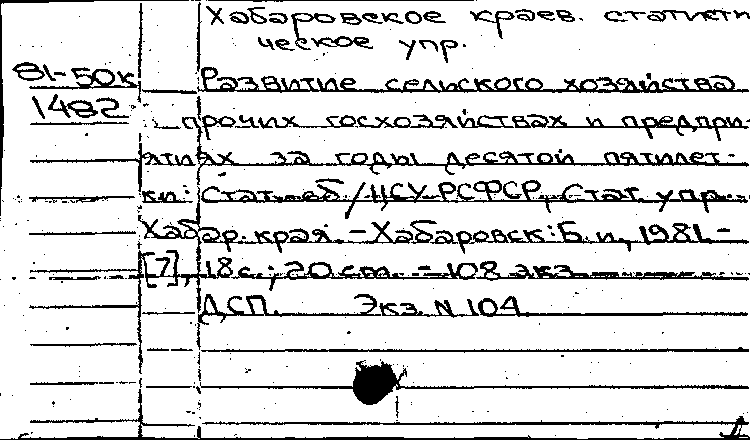 Хабаровское краев. статисти
ческое упр.
81-50к Развитие сельского хозяйства
1482 прочих госхозяйствах и предпри-
ятиях за годы десятой пятилет-
ки: Стат. сб/ЦСУ РСФСР, Стат. упр.
Хабар. края. - Хабаровск: Б.и, 1981. -
[7], 18с.; 20 cm. - 108 экз
ДСП. Экз. N 104.